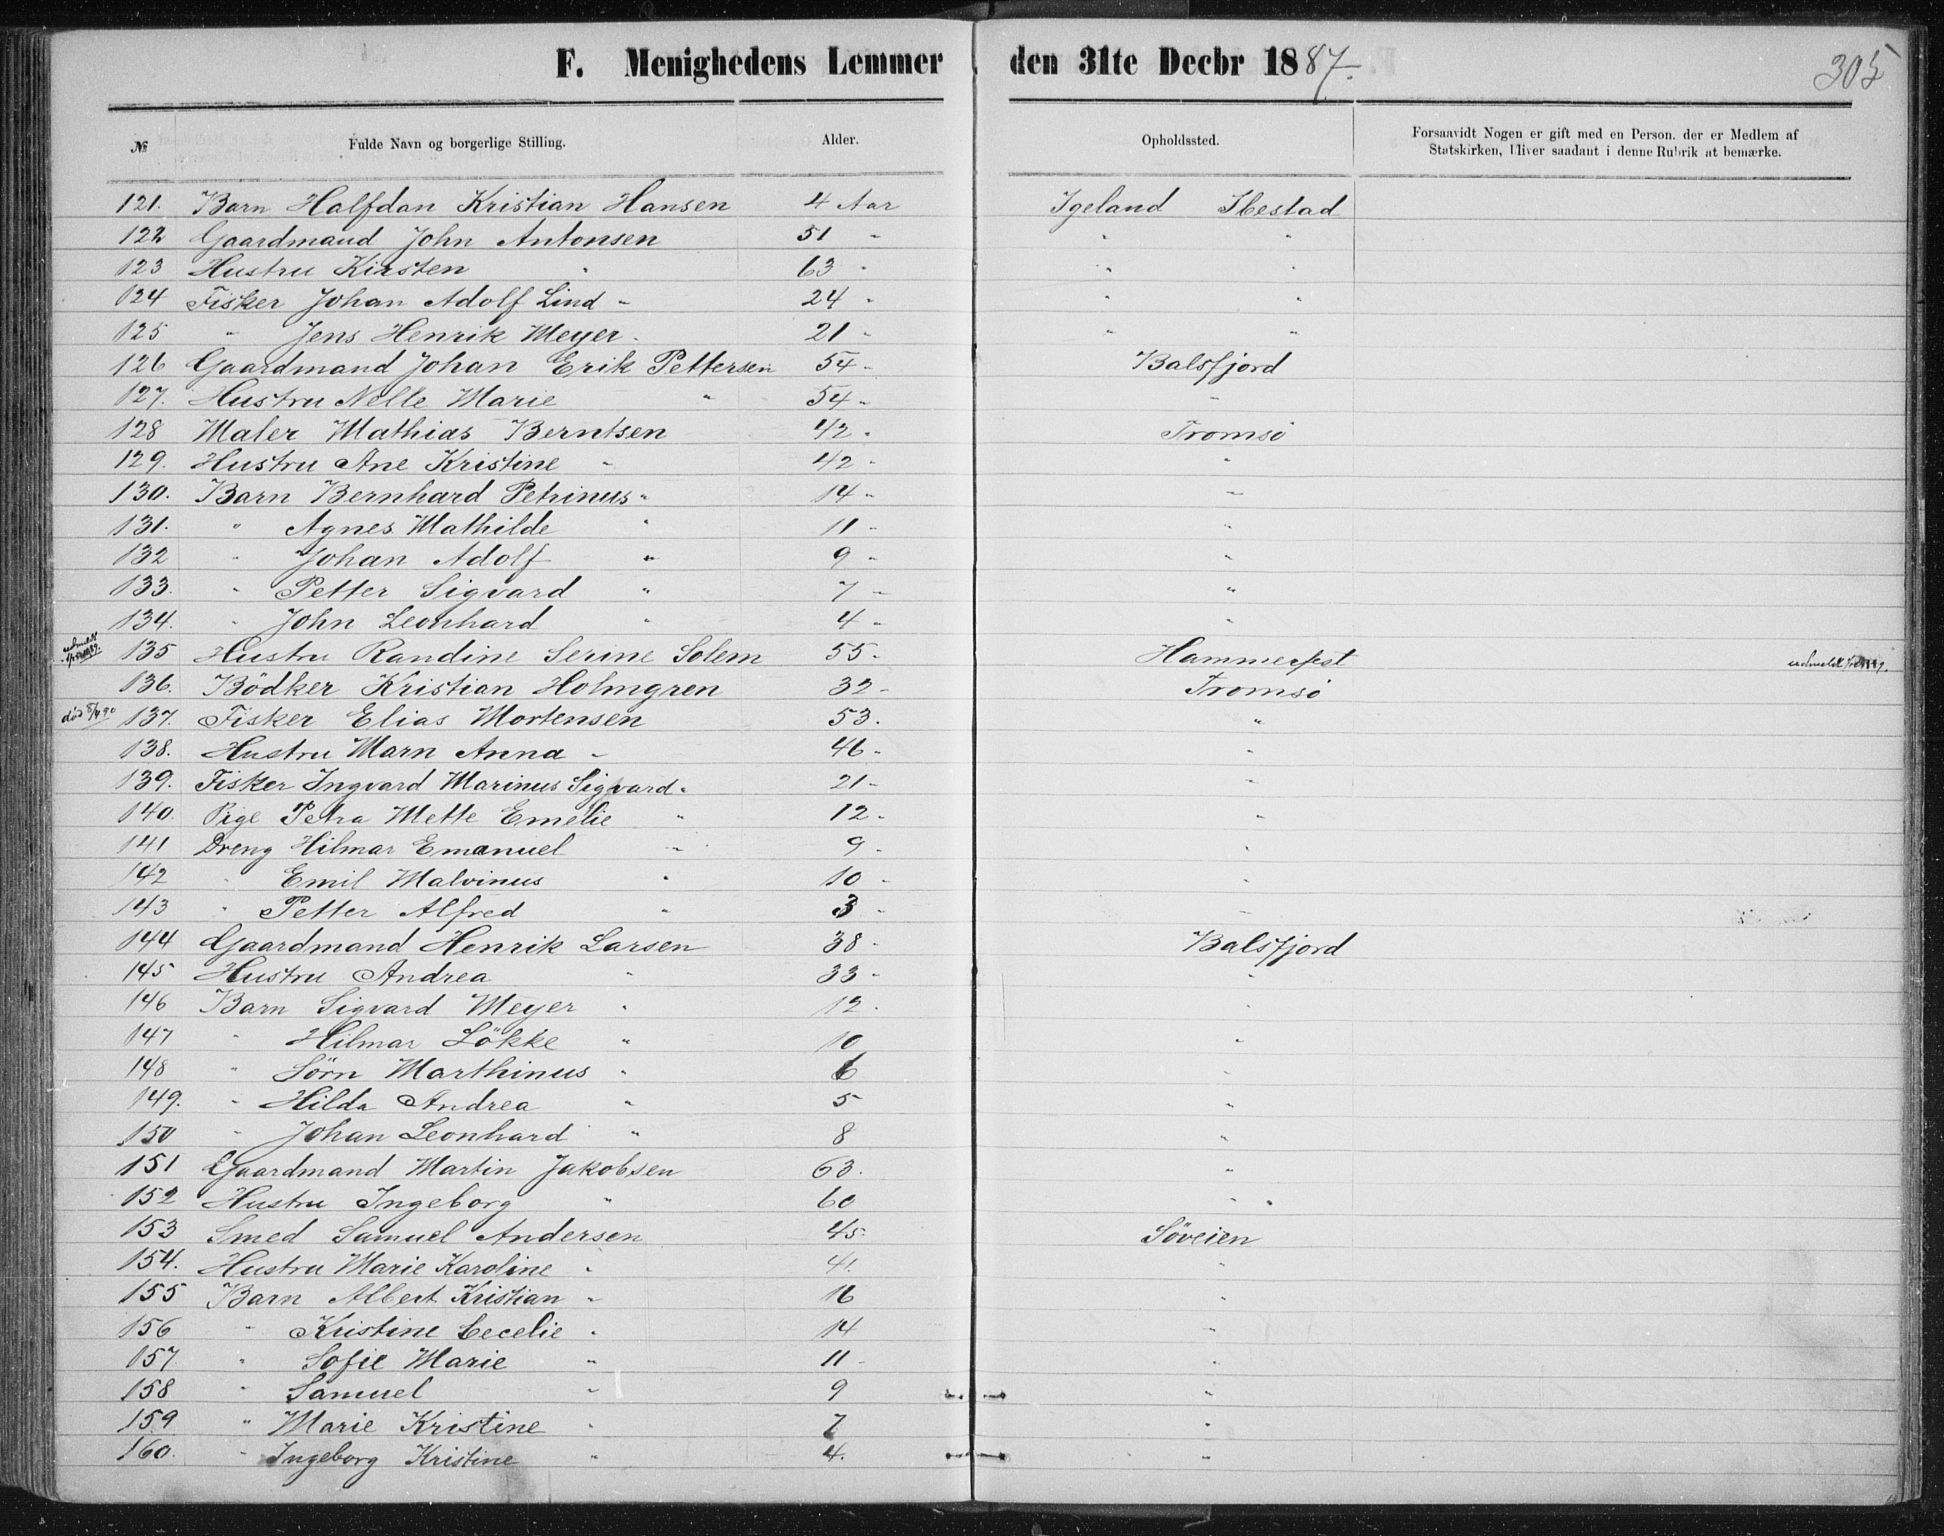 F. Menighedens Lemmer den 31te Decbr 1887.
305
№ Fulde Navn og borgerlige Stilling. Alder. Opholdssted. Forsaavidt Nogen er gift med en Person. der er Medlem af
Statskirken, bliver saadant i denne Rubrik at bemærke.
121. Barn Halfdan Kristian Hansen 4 Aar Igeland Ibestad
122 Gaardmand John Antonsen 51 " " "
123 Hustru Kirsten " 63 " " "
124 Fisker Johan Adolf Lind " 24 " " "
125 " Jens Henrik Meyer " 21 " " "
126 Gaardmand Johan Erik Pettersen 54 " Balsfjord
127. Hustru Nelle Marie " 54 " "
128 Maler Mathias Berntsen 42 " Tromsö
129. Hustru Ane Kristine " 42 " "
130. Barn Bernhard Petrinus " 14 " "
131. " Agnes Mathilde " 11 " "
132 " Johan Adolf " 9 " "
133. " Petter Sigvard " 7 " "
134. " John Leonhard " 4 " "
udmeldt 135 Hustru Randine Serine Solem 55 " Hammerfest udmeldt
136. Bödker Kristian Holmgren 32 " Tromsö
död 8/4 90 137. Fisker Elias Mortensen 53. "
138. Hustru Marn Anna " 46 " "
139. Fisker Ingvard Marinus Sigvard " 21 " "
140. Pige Petra Mette Emelie " 12 " "
141 Dreng Hilmar Emanuel " 9 " "
142 " Emil Malvinus " 10 " "
143 " Petter Alfred " 3 " "
144 Gaardmand Henrik Larsen 38 " Balsfjord
145 Hustru Andrea " 33 " "
146 Barn Sigvard Meyer " 12 " "
147 " Hilmar Lökke " 10 "
148 " Sörn Marthinus " 6 "
149. " Hilda Andrea " 5 "
150 " Johan Leonhard " 8 "
151 Gaardmand Martin Jakobsen 63. "
152 Hustru Ingeborg " 60 " "
153 Smed Samuel Andersen 45 Söveien
154. Hustru Marie Karoline " 41. "
155 Barn Albert Kristian " 16 "
156 " Kristine Cecelie " 14 "
157 " Sofie Marie " 11 "
158 " Samuel " 9 "
159 " Marie Kristine " 7 "
160. " Ingeborg Kristine " 4. "